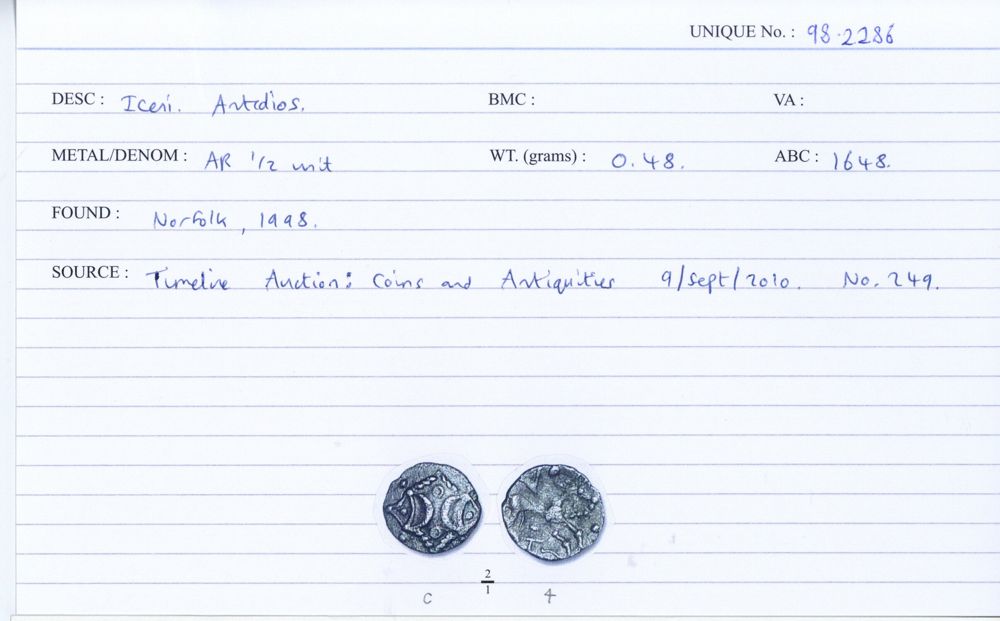 UNIQUE No. : 98.2286
DESC : Iceni. Antedios. BMC : VA :
METAL/DENOM : AR 1/2 unit WT. (grams) : 0.48. ABC : 1648.
FOUND : Norfolk, 1998.
SOURCE : Timeline Auction: Coins and Antiquities 9/Sept/2010. No. 249.
2
1
c 4